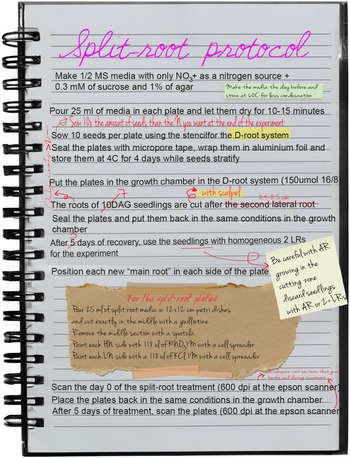 Split-root protocol
Make 1/2 MS media with only NO3+ as a nitrogen source +
0.3 mM of sucrose and 1% of agar
Make the media the day before and
store at
for less condensation
Pour 25 ml of media in each plate and let them dry for 10-15 minutes
Sow 10x the amount of seeds than the N you want at the end of the experiment
Sow 10 seeds per plate using the stencilfor the D-root system
Seal the plates with micropore tape, wrap them in aluminium foil and
store them at 4C for 4 days while seeds stratify
Put the plates in the growth chamber in the D-root system (150umol 16/8
7
6 with scalpel
0.4-0.5cm
The roots of 10DAG seedlings are cut after the second lateral root
Seal the plates and put them back in the same conditions in the growth
chamber
After 5 days of recovery, use the seedlings with homogeneous 2 LRs
for the experiment
Be careful with AR
growing in the
cutting zone
discard seedlings
with AR or 2+ LRs
Position each new "main root" in each side of the plate
For the split-root plates
Pour 25 ml of split root media in 12x12 cm petri dishes
and cut exactly in the middle with a guillotine
Remove the middle section with a spatula
Paint each HN side with 118 ul of KNO3 1M with a cell spreader
Paint each LN side with a 118 ul of KCl 1M with a cell spreader
Scan the day 0 of the split-root treatment (600 dpi at the epson scanner)
Place the plates back in the same conditions in the growth chamber
After 5 days of treatment, scan the plates (600 dpi at the epson scanner)